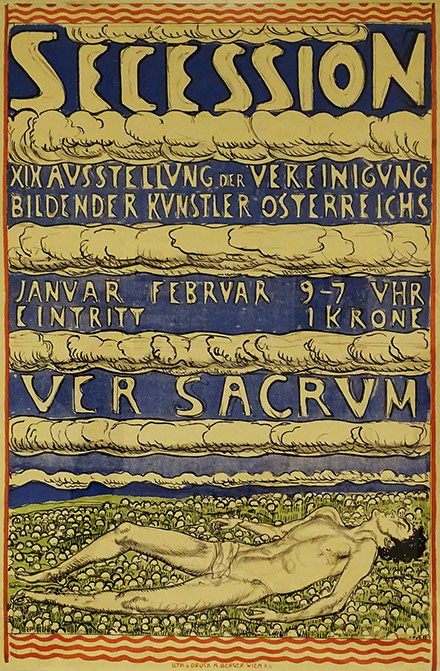 SECESSION
XIX AVSSTELLVNG DER VEREINIGVNG
BILDENDER KVNSTLER OSTERREICHS
JANVAR FEBRVAR 9-7 VHR
EINTRITT 1 KRONE
VER SACRVM
LITH. u. DRUCK A. BERGER, WIEN